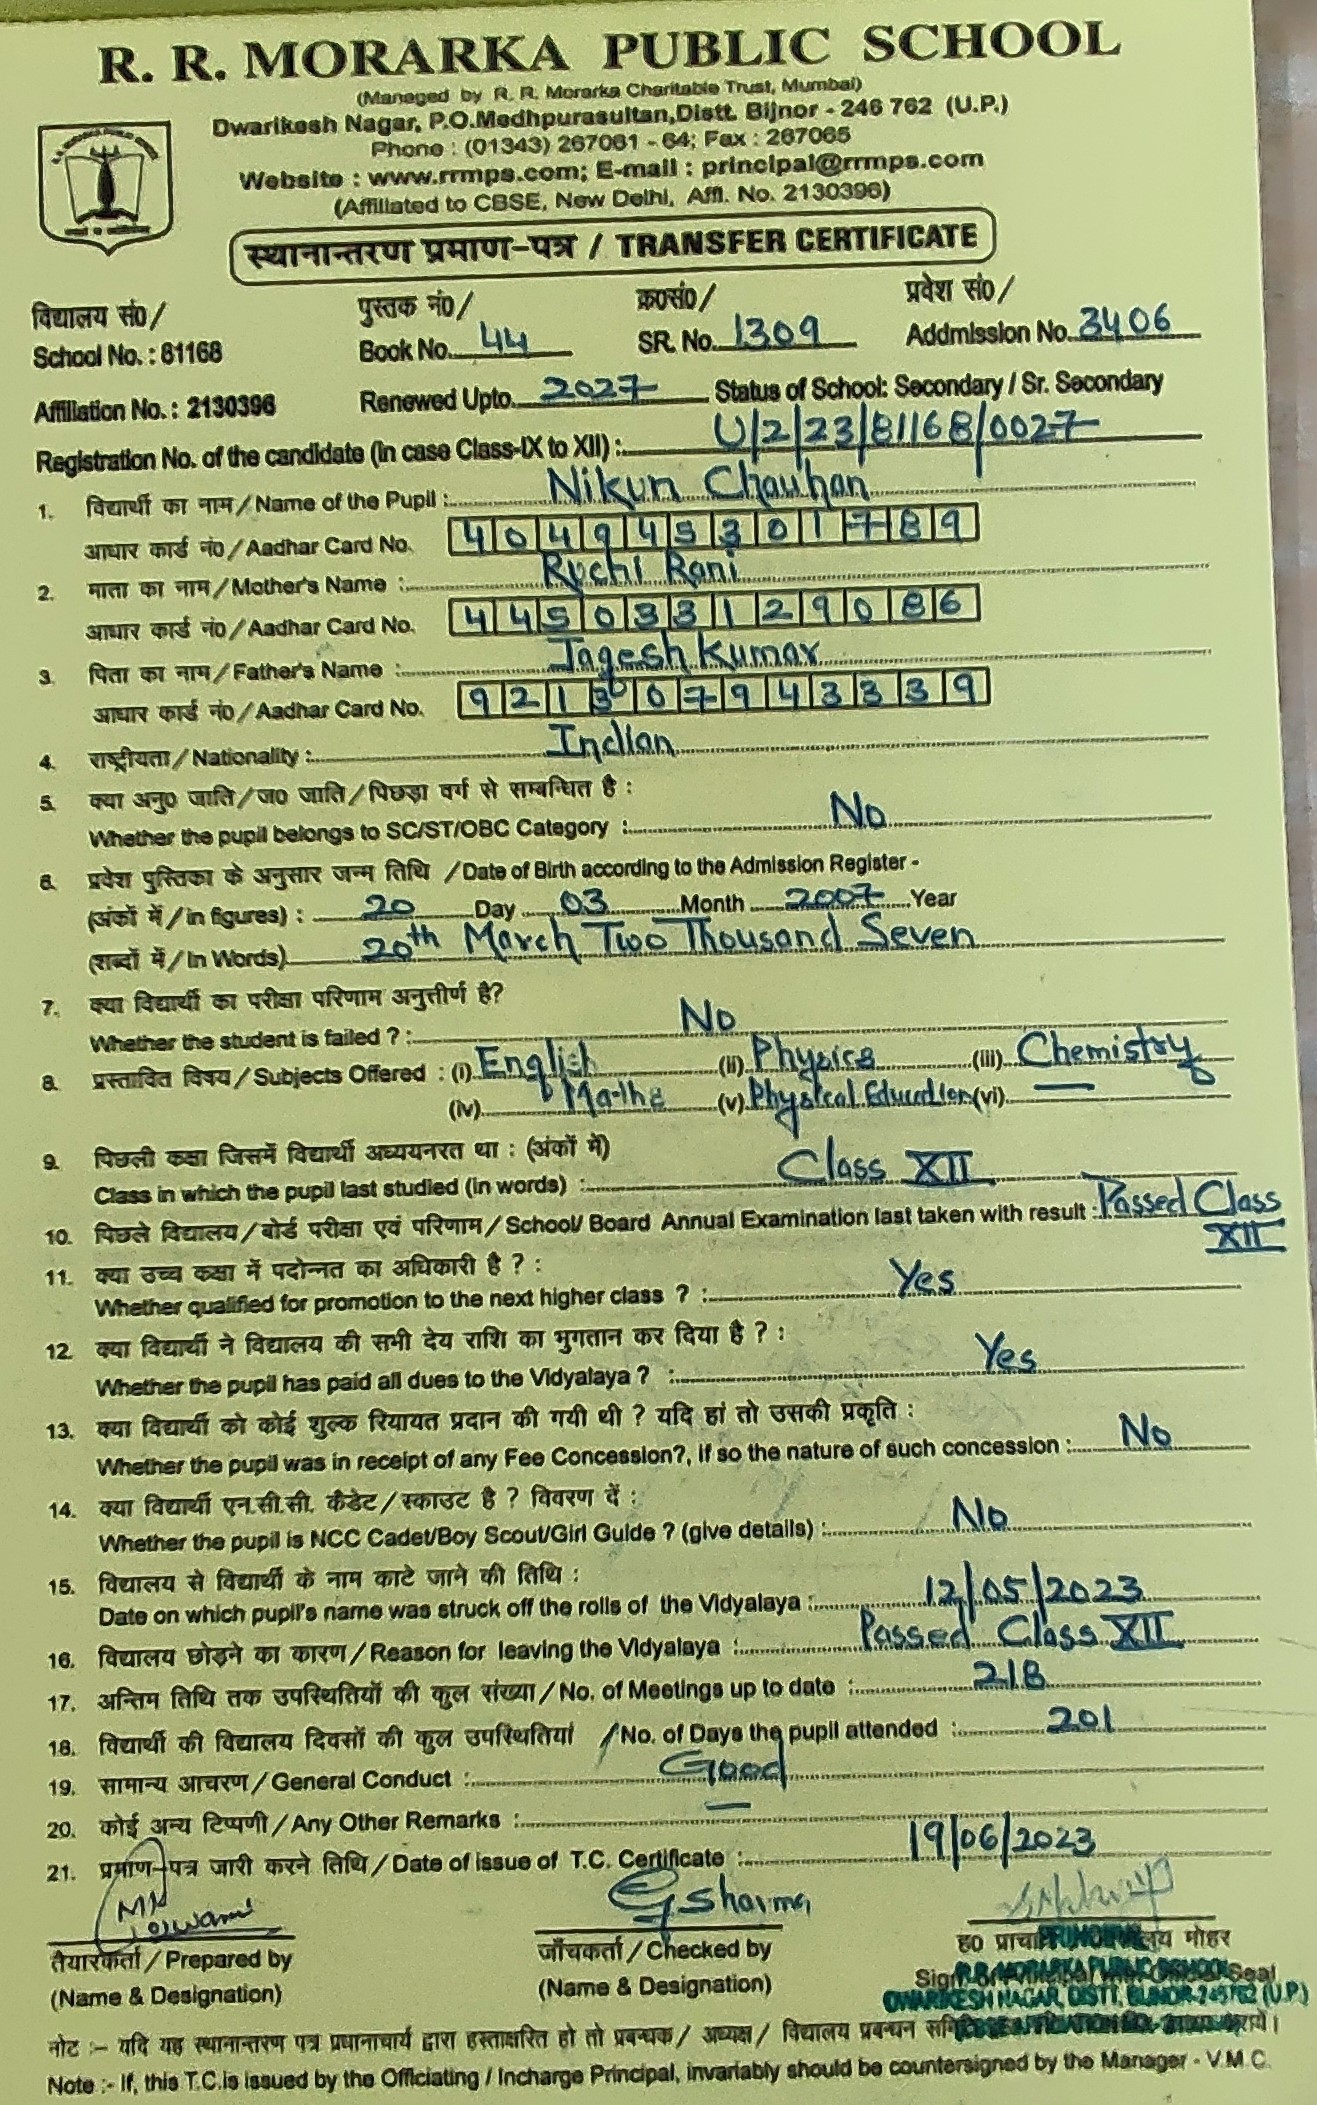 R. R. MORARKA PUBLIC SCHOOL
(Managed by R. R. Morarka Charitable Trust, Mumbai)
Dwarikesh Nagar, P.O.Medhpurasultan,Distt. Bijnor - 246 762 (U.P.)
Phone : (01343) 267061 - 64; Fax : 267065
Website : www.rrmps.com; E-mail : principal@rrmps.com
(Affiliated to CBSE, New Delhi, Affl. No. 2130396)
स्थानान्तरण प्रमाण-पत्र / TRANSFER CERTIFICATE
विद्यालय सं0/ पुस्तक नं0/ क्र0सं0/ प्रवेश सं0/
School No. : 81168 Book No. 44 SR. No. 1309 Addmission No. 3406
Affiliation No. : 2130396 Renewed Upto. 2027 Status of School: Secondary / Sr. Secondary
Registration No. of the candidate (in case Class-IX to XII) : U/2/23/81168/0027
1. विद्यार्थी का नाम / Name of the Pupil : Nikun Chauhan
आधार कार्ड नं0 / Aadhar Card No. 404945301789
2. माता का नाम / Mother's Name : Ruchi Rani
आधार कार्ड नं0 / Aadhar Card No. 445033129086
3. पिता का नाम / Father's Name : Jagesh Kumar
आधार कार्ड नं0 / Aadhar Card No. 921307943339
4. राष्ट्रीयता / Nationality : Indian
5. क्या अनु0 जाति / ज0 जाति / पिछड़ा वर्ग से सम्बन्धित है :
Whether the pupil belongs to SC/ST/OBC Category : No
6. प्रवेश पुस्तिका के अनुसार जन्म तिथि / Date of Birth according to the Admission Register -
(अंकों में / in figures) : 20 Day 03 Month 2007 Year
(शब्दों में / In Words) 20th March Two Thousand Seven
7. क्या विद्यार्थी का परीक्षा परिणाम अनुत्तीर्ण है?
Whether the student is failed ? : No
8. प्रस्तावित विषय / Subjects Offered : (i) English (ii) Physics (iii) Chemistry
(iv) Maths (v) Physical Education (vi) —
9. पिछली कक्षा जिसमें विद्यार्थी अध्ययनरत था : (अंकों में)
Class in which the pupil last studied (in words) : Class XII
10. पिछले विद्यालय / बोर्ड परीक्षा एवं परिणाम / School/ Board Annual Examination last taken with result : Passed Class
XII
11. क्या उच्च कक्षा में पदोन्नत का अधिकारी है ? :
Whether qualified for promotion to the next higher class ? : Yes
12. क्या विद्यार्थी ने विद्यालय की सभी देय राशि का भुगतान कर दिया है ? :
Whether the pupil has paid all dues to the Vidyalaya ? : Yes
13. क्या विद्यार्थी को कोई शुल्क रियायत प्रदान की गयी थी ? यदि हां तो उसकी प्रकृति :
Whether the pupil was in receipt of any Fee Concession?, if so the nature of such concession : No
14. क्या विद्यार्थी एन.सी.सी. कैडेट / स्काउट है ? विवरण दें :
Whether the pupil is NCC Cadet/Boy Scout/Girl Guide ? (give details) : No
15. विद्यालय से विद्यार्थी के नाम काटे जाने की तिथि :
Date on which pupil's name was struck off the rolls of the Vidyalaya : 12/05/2023
16. विद्यालय छोड़ने का कारण / Reason for leaving the Vidyalaya : Passed Class XII
17. अन्तिम तिथि तक उपस्थितियों की कुल संख्या / No. of Meetings up to date : 218
18. विद्यार्थी की विद्यालय दिवसों की कुल उपस्थितियां / No. of Days the pupil attended : 201
19. सामान्य आचरण / General Conduct : Good
20. कोई अन्य टिप्पणी / Any Other Remarks : —
21. प्रमाण-पत्र जारी करने तिथि / Date of issue of T.C. Certificate : 19/06/2023
G Sharma
तैयारकर्ता / Prepared by जाँचकर्ता / Checked by ह0 मोहर
(Name & Designation) (Name & Designation) Seal
PRINCIPAL
R.R. MORARKA PUBLIC SCHOOL
DWARIKESH NAGAR, DISTT. BIJNOR-246762 (U.P.)
नोट :- यदि यह स्थानान्तरण पत्र प्रधानाचार्य द्वारा हस्ताक्षरित हो तो प्रबन्धक / अध्यक्ष / विद्यालय प्रबन्धन
Note :- If, this T.C.is issued by the Officiating / Incharge Principal, invariably should be countersigned by the Manager - V.M.C.